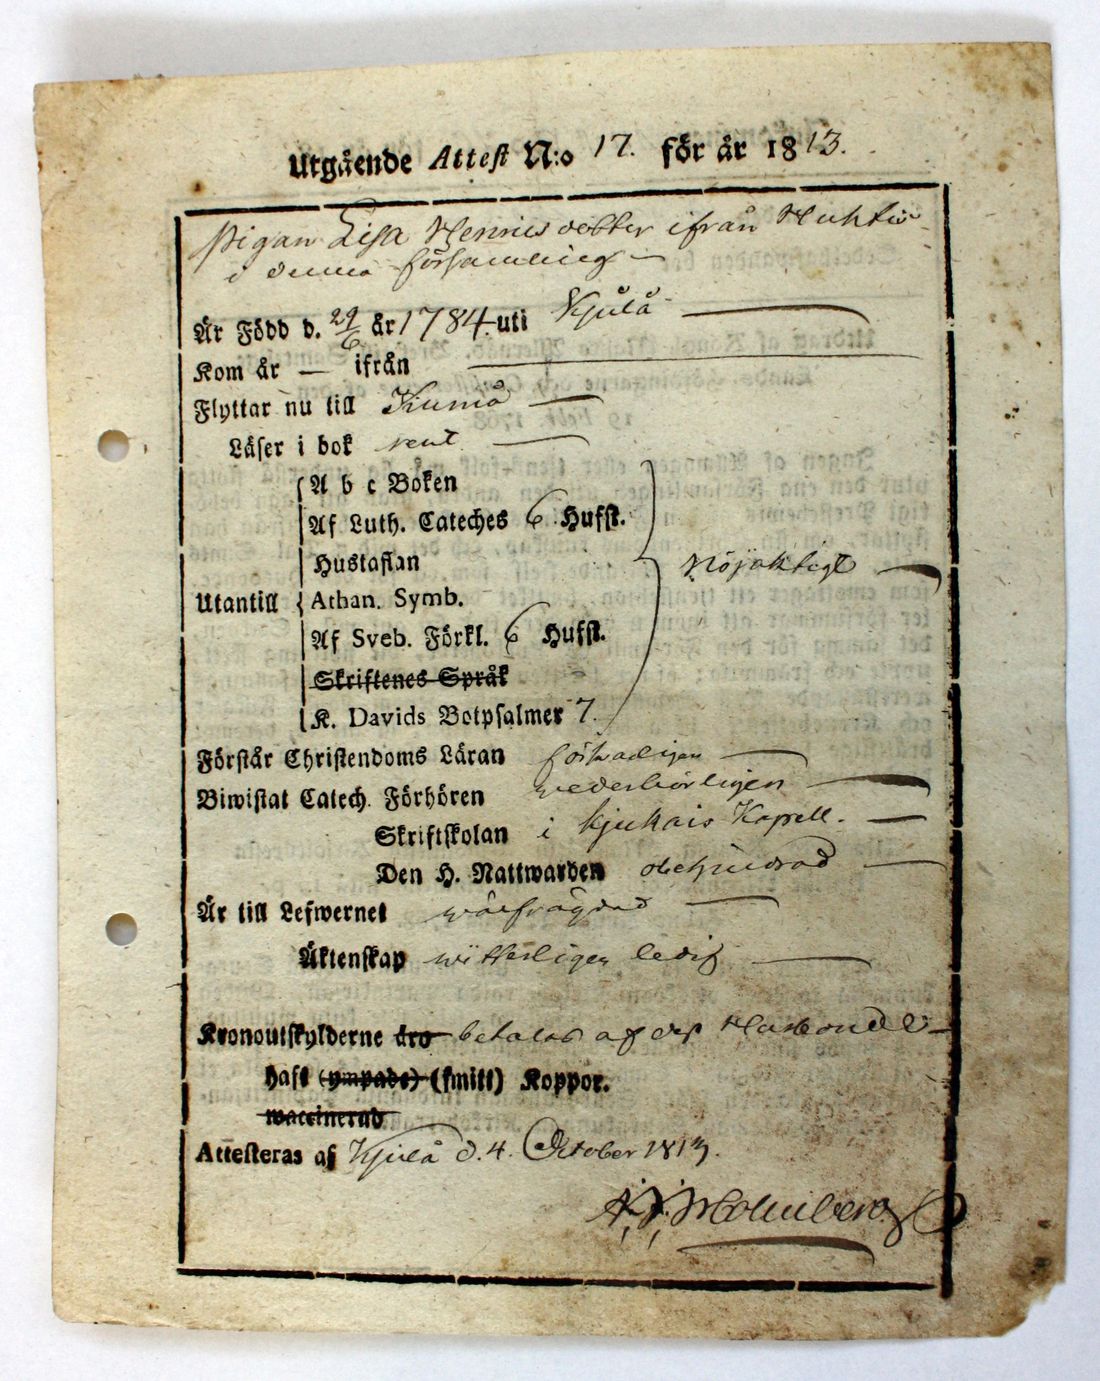 Utgående Attest N:o 17. för år 1813.
Pigan Lisa Henricsdotter ifrån
i denna församling
Är Född d. 29/6 år 1784 uti Kjulå
Kom år — ifrån
Flyttar nu till Kumo
Läser i bok rent
A b c Boken
Af Luth. Cateches 6 Hufst.
Hustaflan
Nöjaktigt
Utantill
Athan. Symb.
Af Sveb. Förkl. 6 Hufst.
Skriftenes Språk
K. Davids Botpsalmer 7.
Förstår Christendoms Läran försvarligen
Biwistat Catech. Förhören wederbörligen
Skriftskolan i Kjukais Kapell.
Den H. Nattwarden obehindrad
Är till Lefwernet
Äktenskap witterligen ledig
Kronoutskylderne äro betalas af des Husbonde
haft (ympade) (smitt) Koppor.
waccinerad
Attesteras af Kjulå d. 4. October 1813.
Holmberg